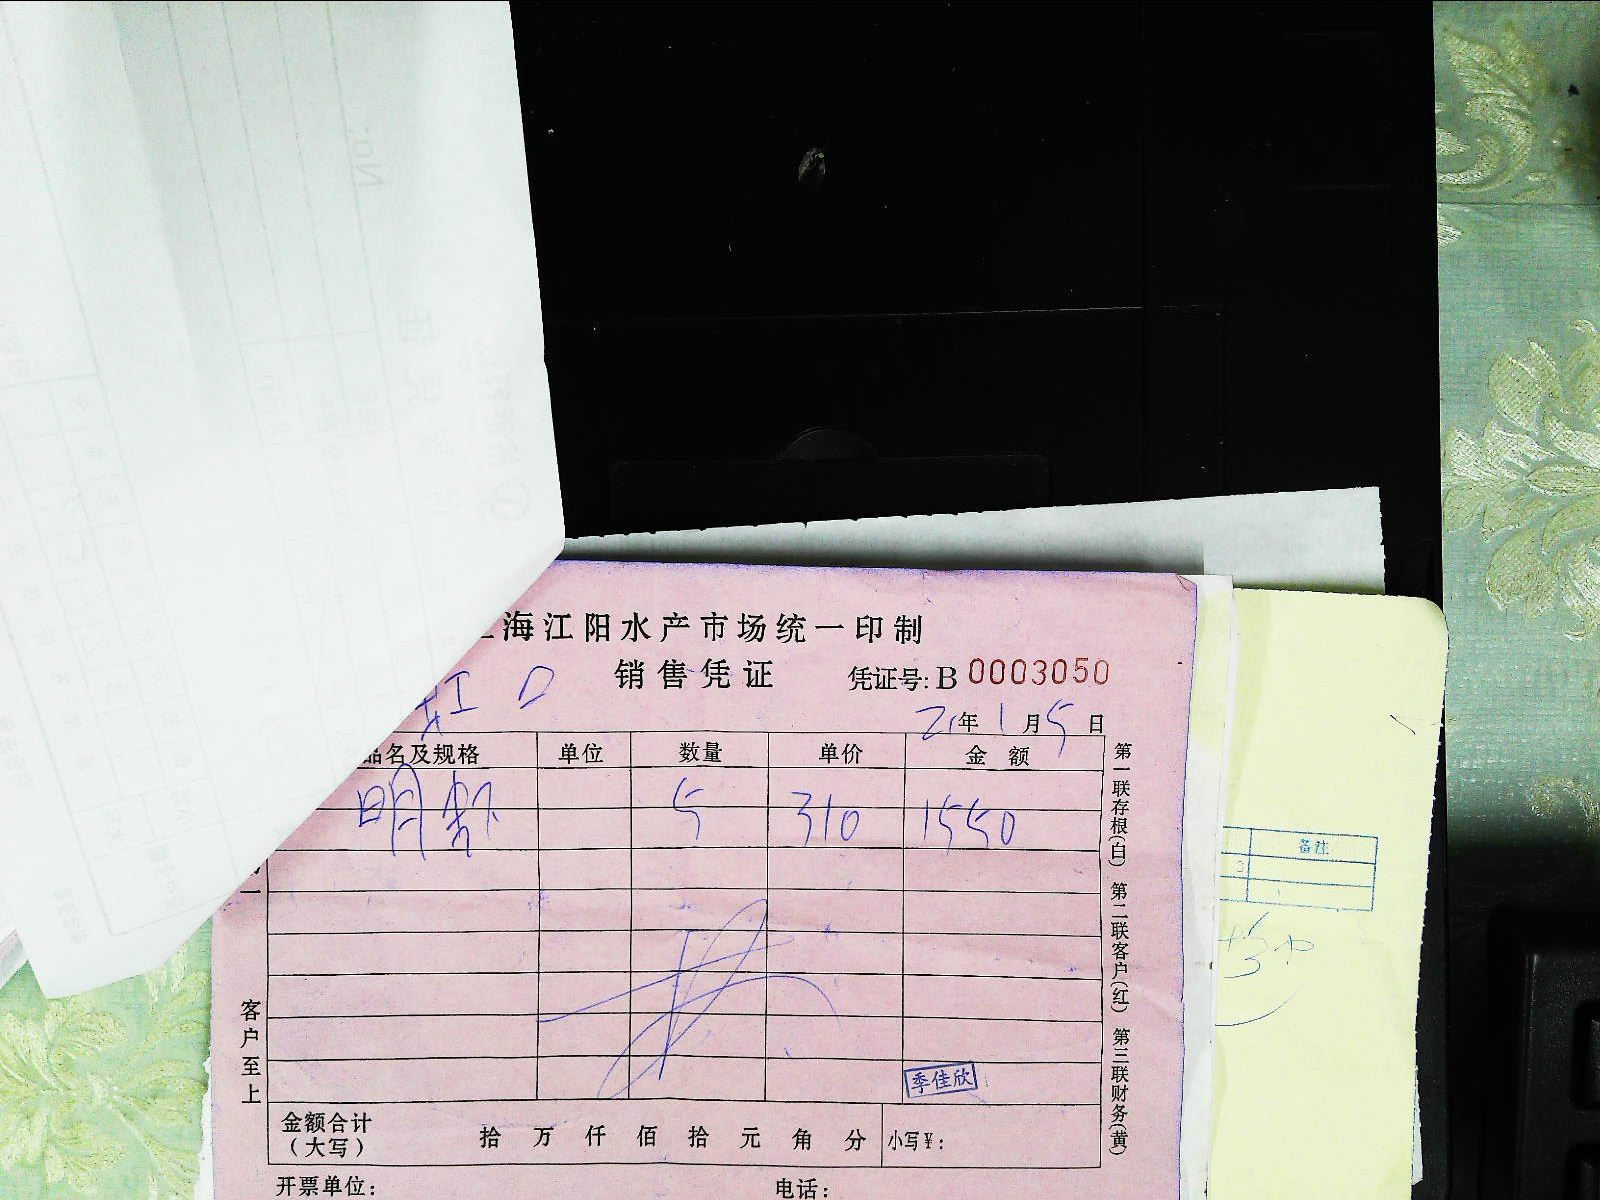 海江阳水产市场统一印制
销售凭证 凭证号: B 0003050
虹口 21年1月5日
品名及规格 单位 数量 单价 金额
明虾 5 310 1550
季佳欣
金额合计
(大写) 拾 万 仟 佰 拾 元 角 分 小写¥:
开票单位: 电话:
客户至上
第一联存根(白) 第二联客户(红) 第三联财务(黄)
备注